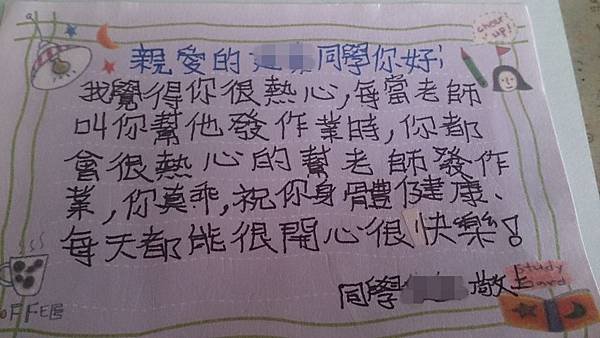 cheer up!
親愛的同學你好!
我覺得你很熱心,每當老師
叫你幫他發作業時,你都
會很熱心的幫老師發作
業,你真乖,祝你身體健康、
每天都能很開心很快樂!
同學 敬上
OFFEE
Study
Card